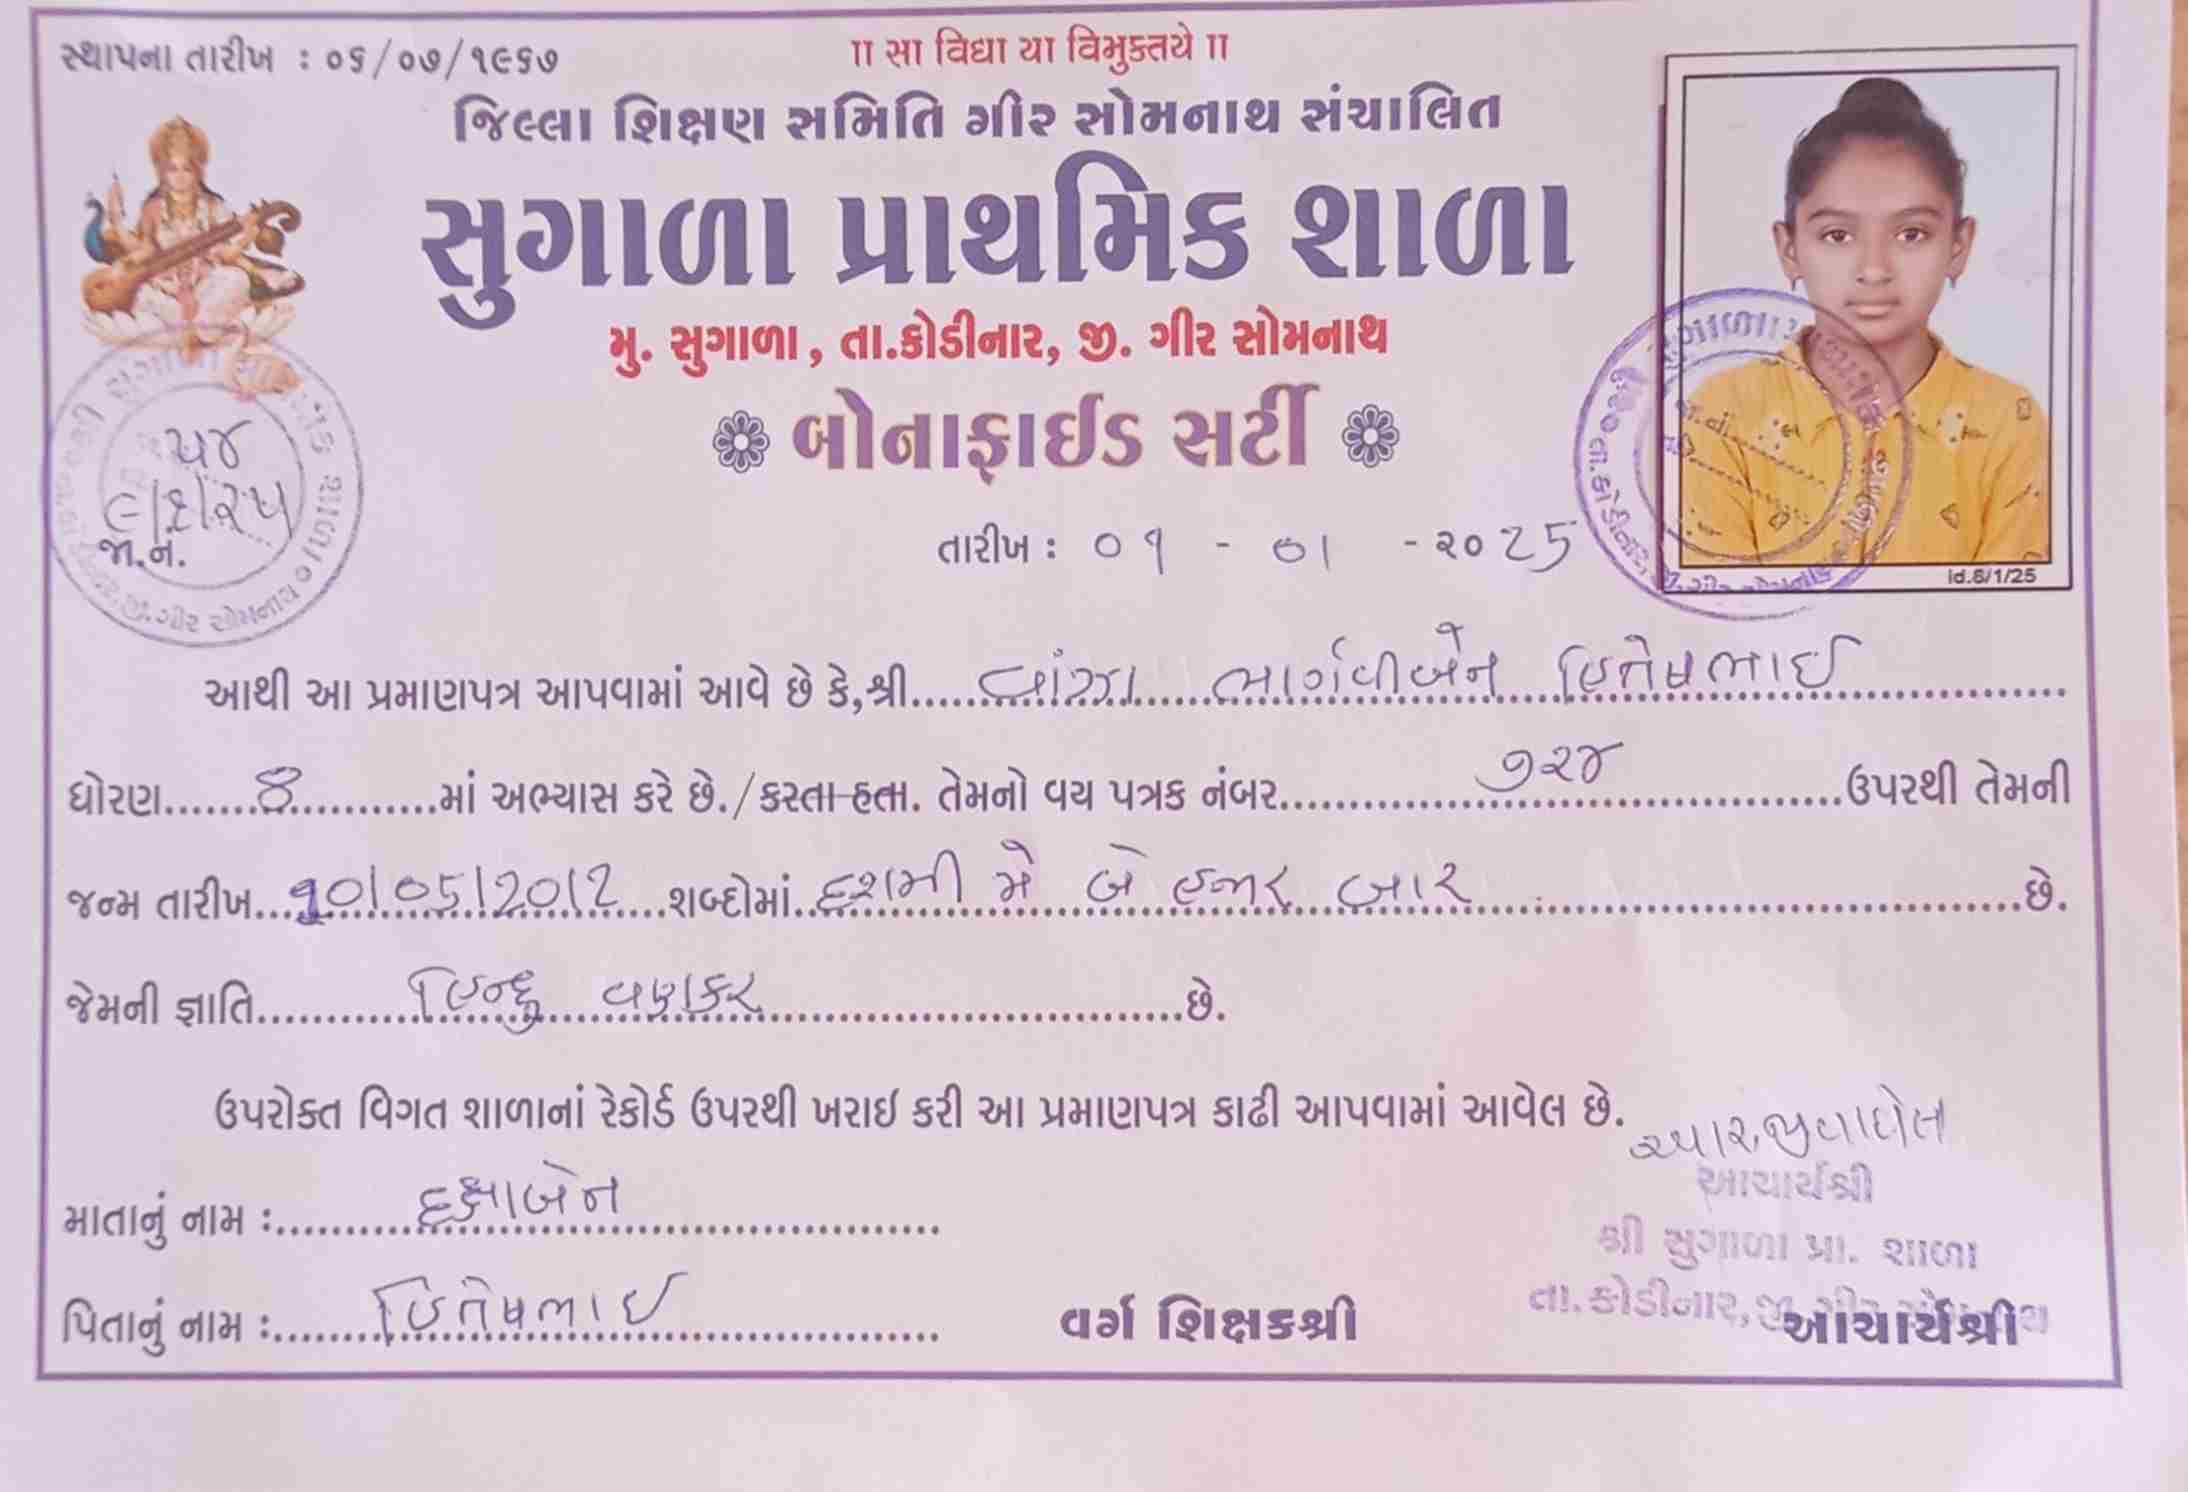 સ્થાપના તારીખ : ૦૬/૦૭/૧૯૬૭
॥ સા વિદ્યા યા વિમુક્તયે ॥
જિલ્લા શિક્ષણ સમિતિ ગીર સોમનાથ સંચાલિત
સુગાળા પ્રાથમિક શાળા
મુ. સુગાળા, તા.કોડીનાર, જી. ગીર સોમનાથ
બોનાફાઈડ સર્ટી
જા.નં.
તારીખ : ૦૧ - ૦1 - ૨૦25
id.6/1/25
આથી આ પ્રમાણપત્ર આપવામાં આવે છે કે,શ્રી ભાર્ગવીબેન હિતેષભાઈ
ધોરણ 8 માં અભ્યાસ કરે છે./કરતા હતા. તેમનો વય પત્રક નંબર ૭૨૪ ઉપરથી તેમની
જન્મ તારીખ ૧0/05/2012 શબ્દોમાં દશમી મે બે હજાર બાર છે.
જેમની જ્ઞાતિ હિન્દુ વણકર છે.
ઉપરોક્ત વિગત શાળાનાં રેકોર્ડ ઉપરથી ખરાઇ કરી આ પ્રમાણપત્ર કાઢી આપવામાં આવેલ છે.
આચાર્યશ્રી
શ્રી સુગાળા પ્રા. શાળા
તા.કોડીનાર,જી.
માતાનું નામ : દક્ષાબેન
પિતાનું નામ : હિતેષભાઈ
વર્ગ શિક્ષકશ્રી
આચાર્યશ્રી